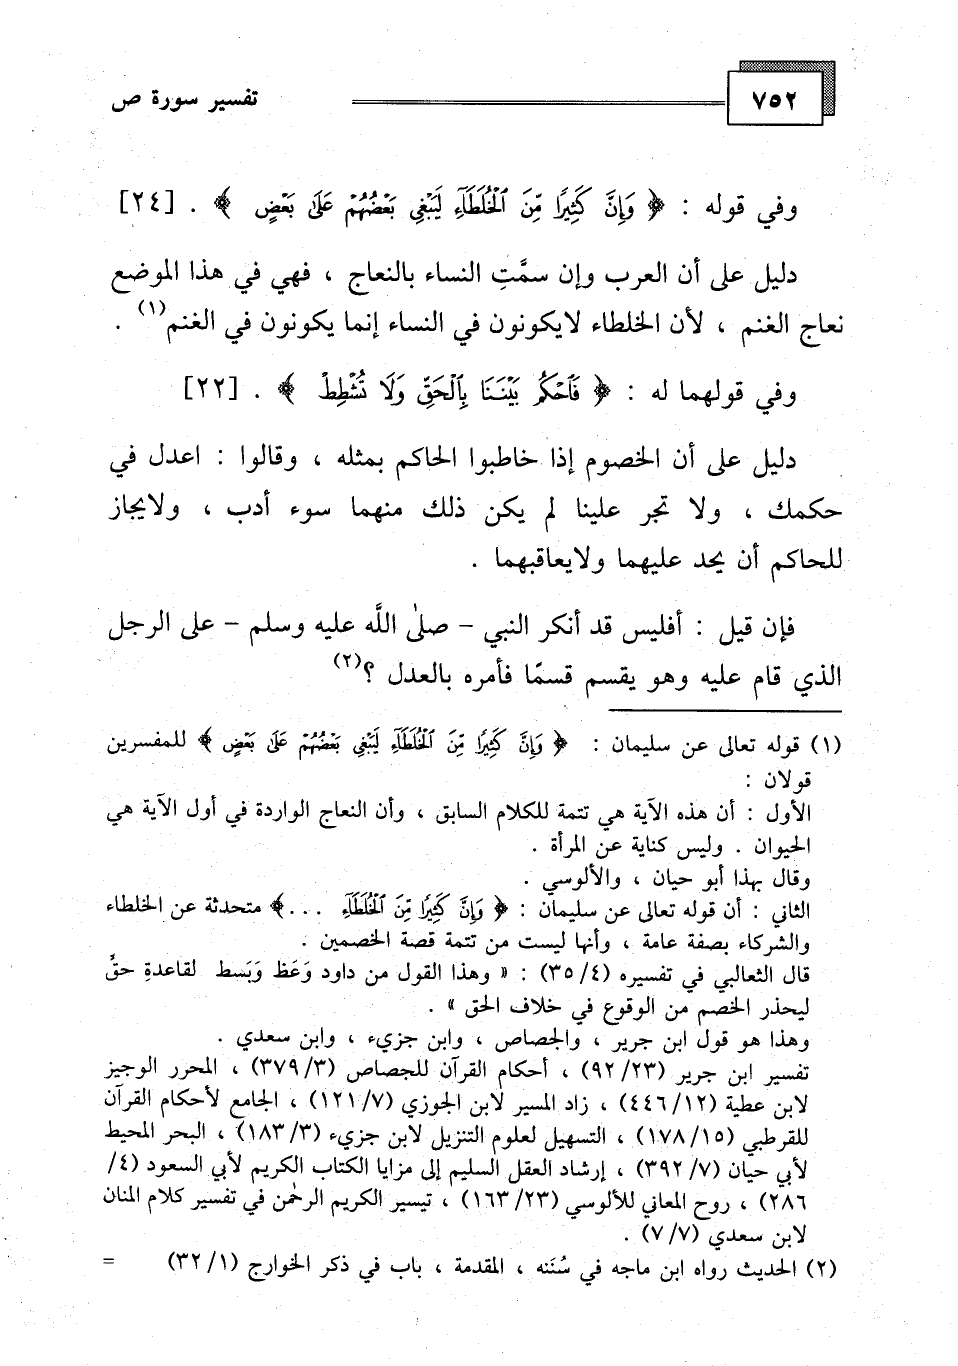 ٧٥٢
تفسير سورة ص
وفي قوله : ﴿ وَإِنَّ كَثِيرًا مِّنَ ٱلْخُلَطَآءِ لَيَبْغِى بَعْضُهُمْ عَلَىٰ بَعْضٍ ﴾ . [٢٤]
دليل على أن العرب وإن سمَّتِ النساء بالنعاج ، فهي في هذا الموضع
نعاج الغنم ، لأن الخلطاء لايكونون في النساء إنما يكونون في الغنم(١) .
وفي قولهما له : ﴿ فَٱحْكُم بَيْنَنَا بِٱلْحَقِّ وَلَا تُشْطِطْ ﴾ . [٢٢]
دليل على أن الخصوم إذا خاطبوا الحاكم بمثله ، وقالوا : اعدل في
حكمك ، ولا تجر علينا لم يكن ذلك منهما سوء أدب ، ولايجاز
للحاكم أن يحد عليهما ولايعاقبهما .
فإن قيل : أفليس قد أنكر النبي - صلىٰ اللَّه عليه وسلم - على الرجل
الذي قام عليه وهو يقسم قسمًا فأمره بالعدل ؟(٢)
(١) قوله تعالى عن سليمان : ﴿ وَإِنَّ كَثِيرًا مِّنَ ٱلْخُلَطَآءِ لَيَبْغِى بَعْضُهُمْ عَلَىٰ بَعْضٍ ﴾ للمفسرين
قولان :
الأول : أن هذه الآية هي تتمة للكلام السابق ، وأن النعاج الواردة في أول الآية هي
الحيوان . وليس كناية عن المرأة .
وقال بهذا أبو حيان ، والألوسي .
الثاني : أن قوله تعالى عن سليمان : ﴿ وَإِنَّ كَثِيرًا مِّنَ ٱلْخُلَطَآءِ ...﴾ متحدثة عن الخلطاء
والشركاء بصفة عامة ، وأنها ليست من تتمة قصة الخصمين .
قال الثعالبي في تفسيره (٣٥/٤) : « وهذا القول من داود وَعَظ وَبَسط لقاعدةِ حقٍّ
ليحذر الخصم من الوقوع في خلاف الحق » .
وهذا هو قول ابن جرير ، والجصاص ، وابن جزيء ، وابن سعدي .
تفسير ابن جرير (٩٢/٢٣) ، أحكام القرآن للجصاص (٣٧٩/٣) ، المحرر الوجيز
لابن عطية (٤٤٦/١٢) ، زاد المسير لابن الجوزي (١٢١/٧) ، الجامع لأحكام القرآن
للقرطبي (١٧٨/١٥) ، التسهيل لعلوم التنزيل لابن جزيء (١٨٣/٣) ، البحر المحيط
لأبي حيان (٣٩٢/٧) ، إرشاد العقل السليم إلى مزايا الكتاب الكريم لأبي السعود (٤/
٢٨٦) ، روح المعاني للألوسي (١٦٣/٢٣) ، تيسير الكريم الرحمٰن في تفسير كلام المنان
لابن سعدي (٧/٧) .
(٢) الحديث رواه ابن ماجه في سُنَنه ، المقدمة ، باب في ذكر الخوارج (٣٢/١) =